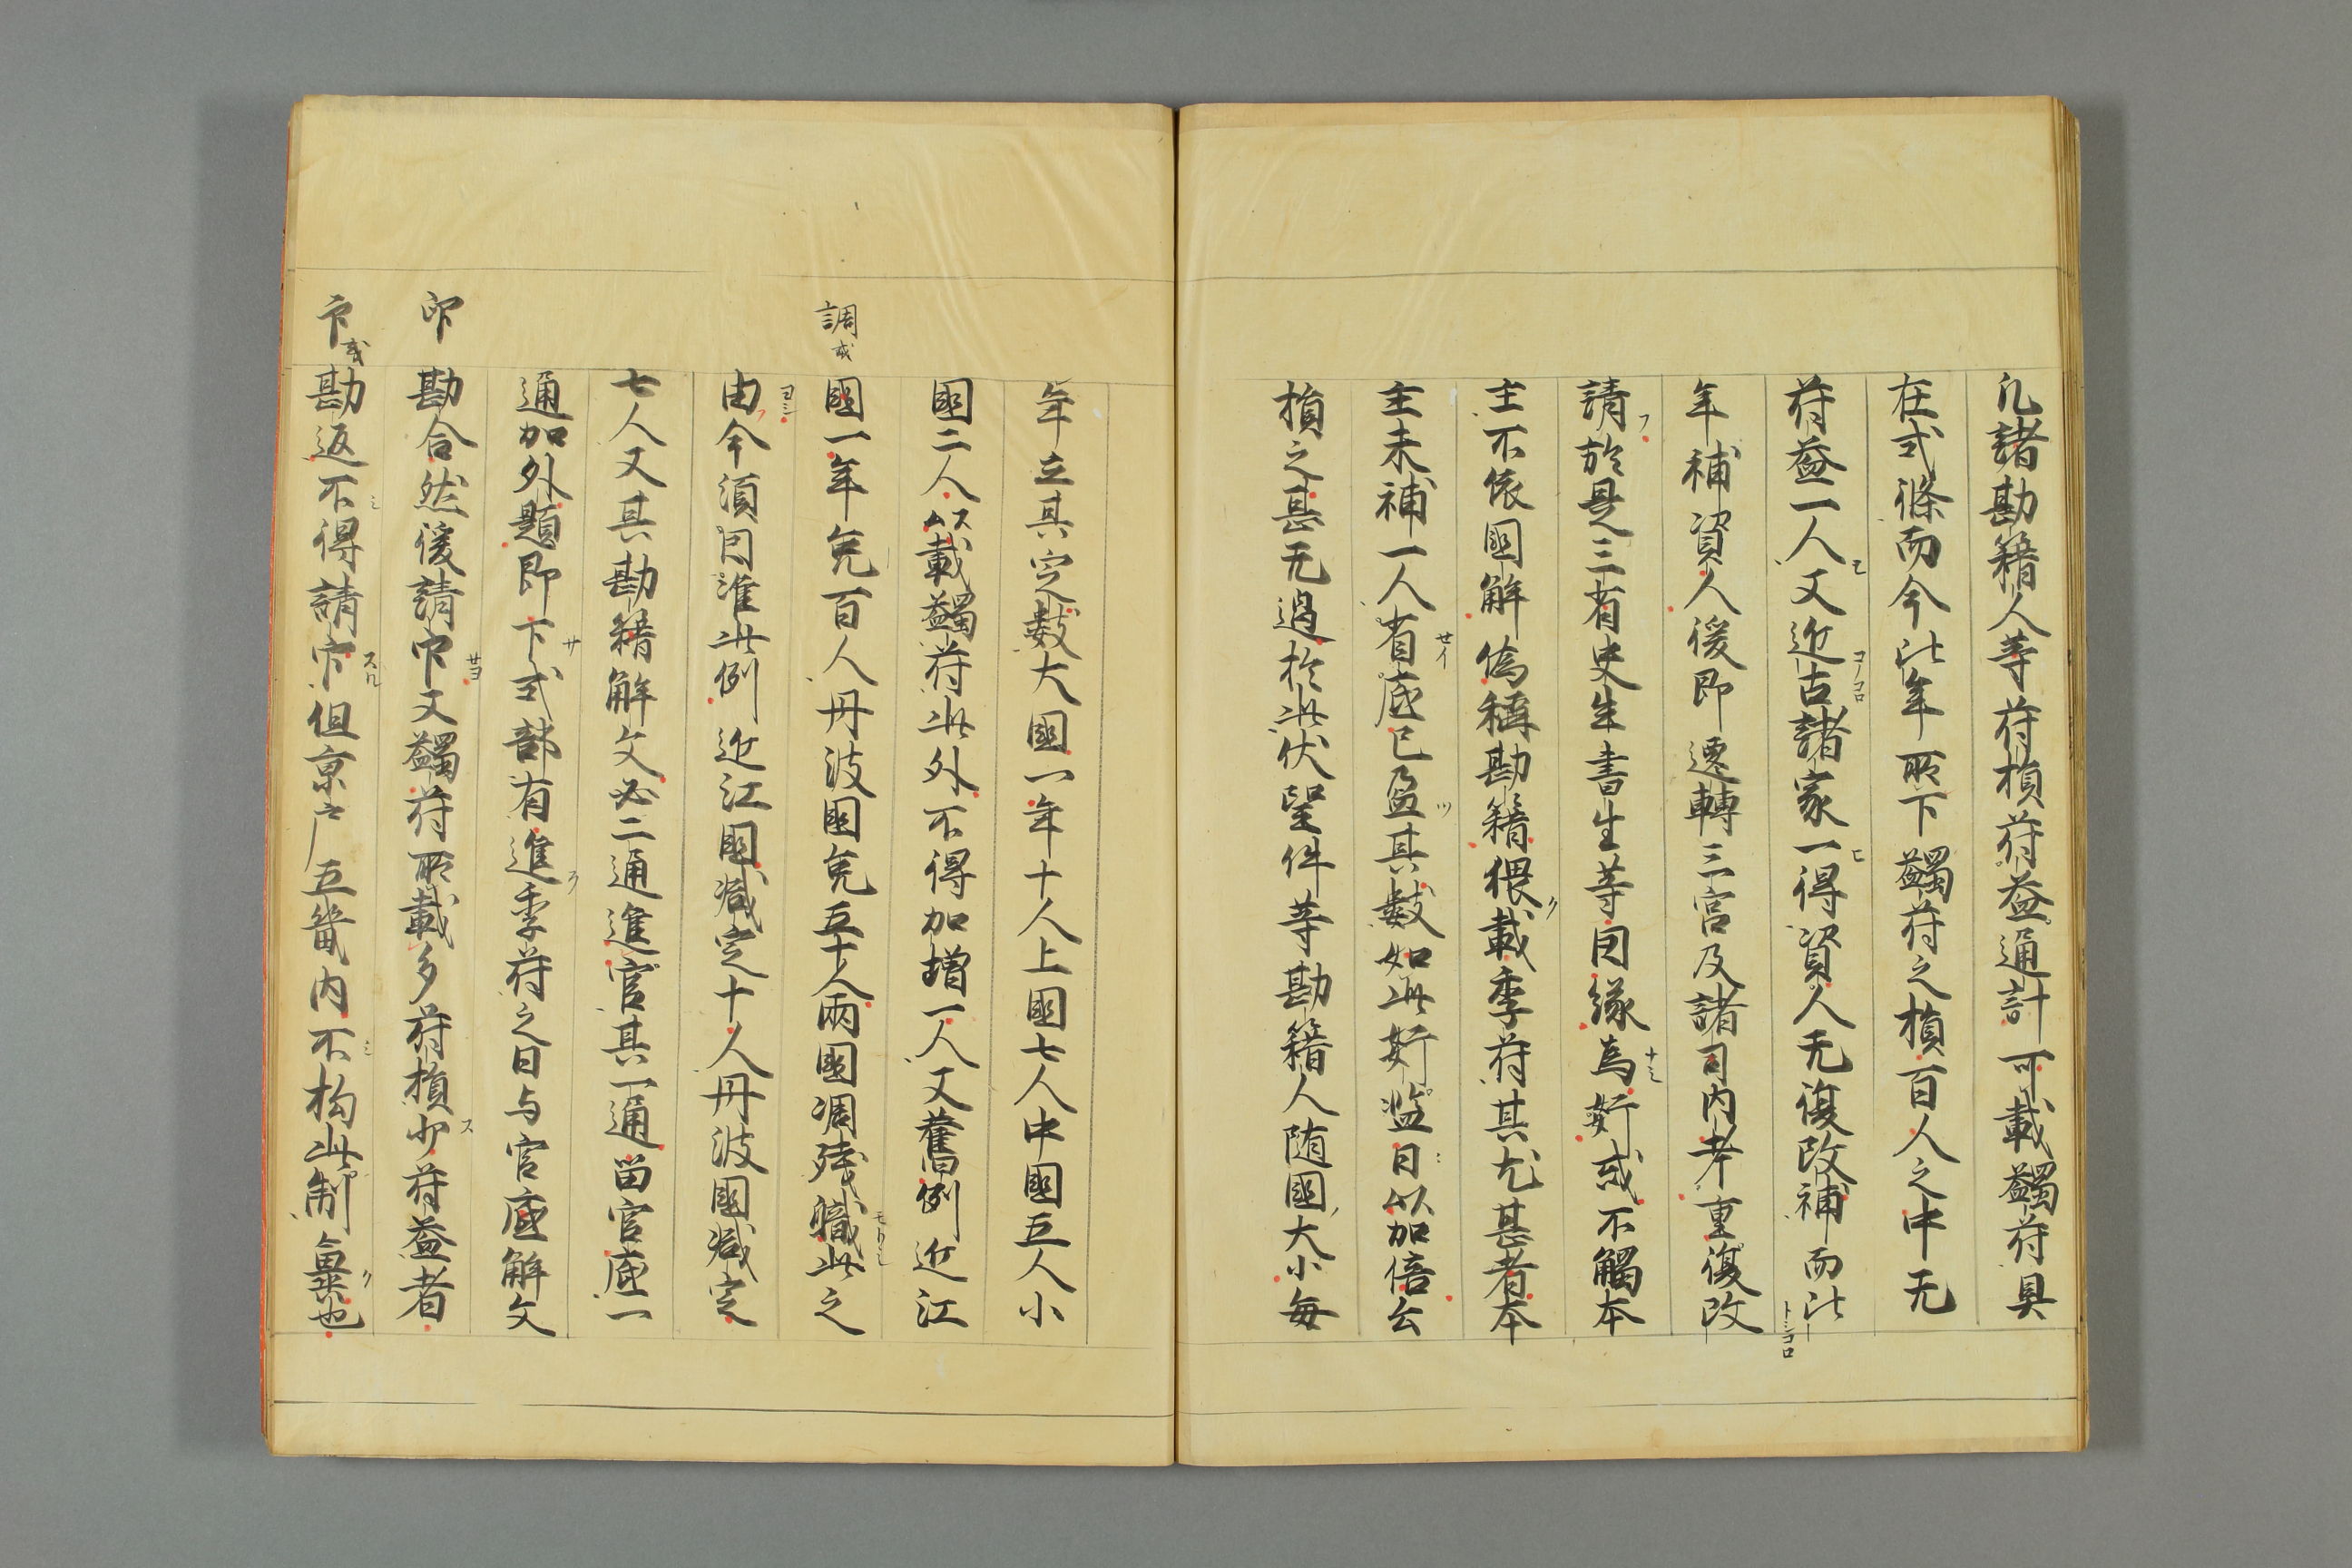 凡諸勘籍人等符損符益通計可載蠲符具
在式條而今此年所下蠲符之損百人之中无
符益一人又近古諸家一得資人无復改補而比
モ コノコロ ヒ トシコロ
年補資人後即遷轉三宮及諸司内考重復改
請於是三省史生書生等因緣為奸或不觸本
フ ナシ
主不依國解偽稱勘籍猥載季符其尤甚者本
ク
主未補一人省底已盈其數如此奸濫日以加倍公
セイ ツ
損之甚无過於此伏望件等勘籍人随國大小毎
ノ
年立其定數大國一年十人上國七人中國五人小
國二人以載蠲符此外不得加増一人又舊例近江
ス
調或
國一年免百人丹波國免五十人兩國凋残職此之
由今須因准此例近江國減定十人丹波國減定
ヨシ フ
七人又其勘籍解文必二通進官其一通留官底一
通加外題即下式部有進季符之日与官底解文
サ
印
勘合然後請印又蠲符所載多符損少符益者
ス
印或
勘返不得請印但京戸五畿内不拘此制謹也
ミ スル ミ ク